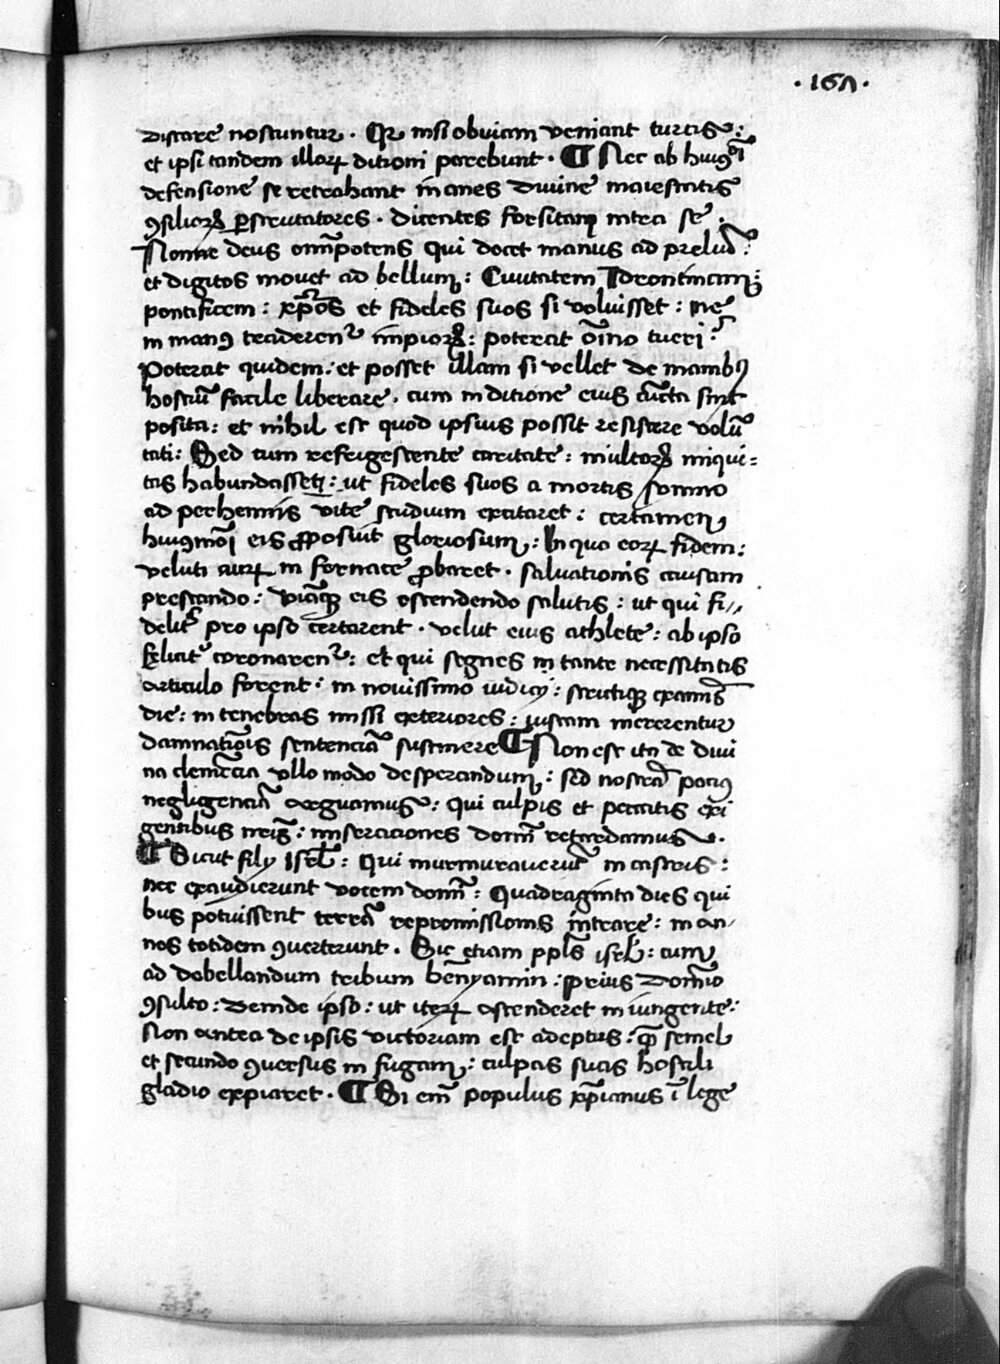 · 167 ·
discare noscuntur. Qꝛ nisi obuiam veniant turcis :
et ipsi tandem illaꝝ ditioni parebunt. ¶ Nec ab huiꝰmōi
defensione se retrahant inanes diuine maiestatis
ꝯsilioꝝ ꝑscrutatores. dicentes forsitan intra se.
Nonne deus om̄ipotens qui docet manus ad preliū:
et digitos mouet ad bellum: Ciuitatem Idrontinam:
pontificem: xp̄os et fideles suos si voluisset: ne
in manꝰ traderent᷑ impioꝝ: poterat oīno tueri?
Poterat quidem: et posset illam si vellet de manibꝰ
hostiū facile liberare. cum in ditione eius cūcta sint
posita: et nihil est quod ipsius possit resistere volū
tati: Sed cum refrigescente caritate: multoꝝ iniqui=
tas habundasset: ut fideles suos a mortis somno
ad perhennis vite studium excitaret: certamen
huiꝰmōi eis ꝓposuit gloriosum: In quo eoꝝ fidem:
veluti auꝝ in fornace ꝓbaret. saluationis causam
prestando: viāqꝫ eis ostendendo salutis: ut qui fi//
delit᷑ pro ipso certarent. velut eius athlete: ab ipso
felicit᷑ coronarent᷑: et qui segnes in tante necessitatis
articulo forent: in nouissimo iudicij: strictiqꝫ examīs
die: in tenebras missi exteriores: iustam mererentur
damnatiōis sentenciā sustinere ¶ Non est ita de diui
na clemēcia vllo modo desperandum: sed nostrā pociꝰ
negligenciā arguamus: qui culpis et peccatis exi
gentibus nr̄is: miseraciones domī retardamus.
¶ Sicut filij Isrł: Qui murmurauerūt in castris:
nec exaudierunt vocem domī: Quadraginta dies qui
bus potuissent terrā repromissionis intrare: in an-
nos totidem ꝯuerterunt. Sic etiam ppl̄s isrł: cum
ad debellandum tribum beniyamin: prius domīo
ꝯsulto: deinde ipso: ut iteꝝ ascenderet in iungente:
non antea de ipsis victoriam est adeptus: qͣ semel
et secundo ꝯuersus in fugam: culpas suas hostili
gladio expiaret. ¶ Si em̄ populus xp̄ianus ī lege